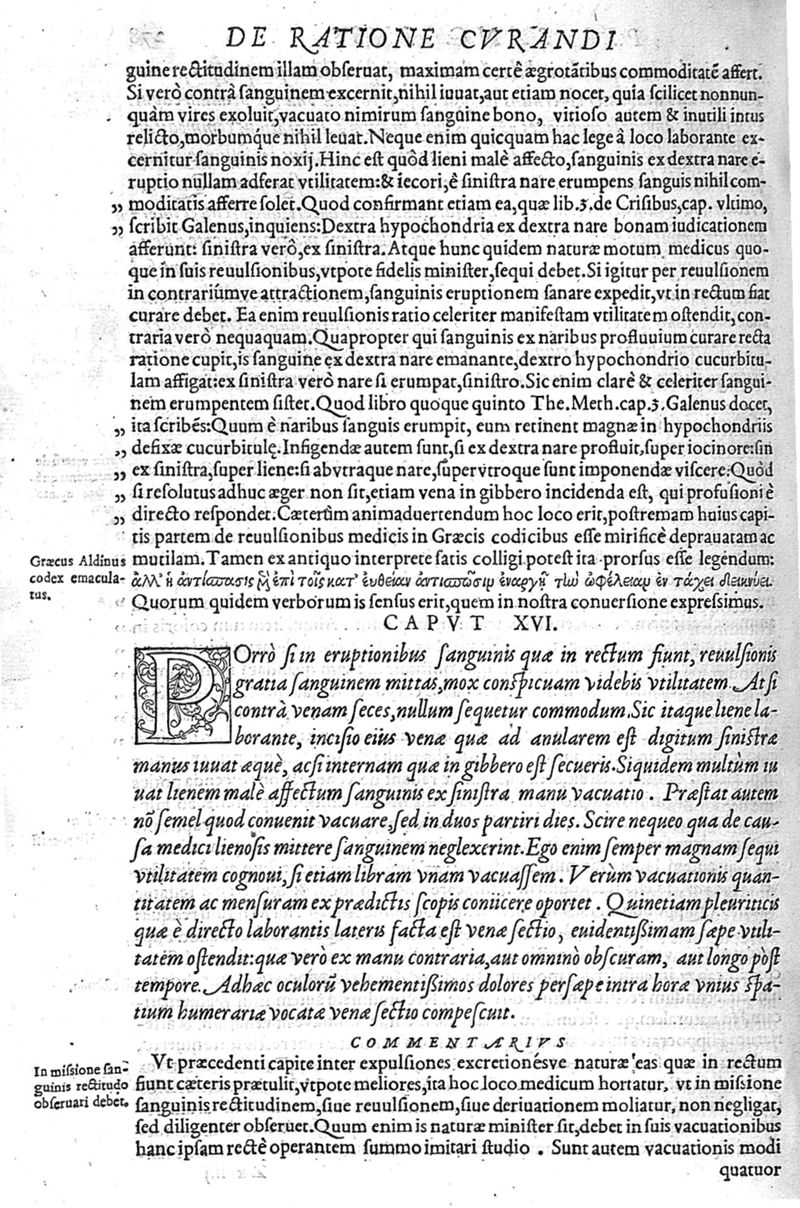 DE RATIONE CVRANDI
guine rectitudinem illam obseruat, maximam certê ægrotãtibus commoditatē affert.
Si verò contrà sanguinem excernit, nihil iuuat, aut etiam nocet, quia scilicet nonnun-
quàm vires exoluit, vacuato nimirum sanguine bono, vitioso autem & inutili intus
relicto, morbumq́ue nihil leuat. Neque enim quicquam hac lege à loco laborante ex-
cernitur sanguinis noxij. Hinc est quòd lieni malè affecto, sanguinis ex dextra nare e-
ruptio nullam adferat vtilitatem: & iecori, è sinistra nare erumpens sanguis nihil com-
„ moditatis afferre solet. Quod confirmant etiam ea, quæ lib. 3. de Crisibus, cap. vltimo,
„ scribit Galenus, inquiens: Dextra hypochondria ex dextra nare bonam iudicationem
afferunt: sinistra verò, ex sinistra. Atque hunc quidem naturæ motum medicus quo-
que in suis reuulsionibus, vtpote fidelis minister, sequi debet. Si igitur per reuulsionem
in contrariúmve attractionem, sanguinis eruptionem sanare expedit, vt in rectum fiat
curare debet. Ea enim reuulsionis ratio celeriter manifestam vtilitatem ostendit, con-
traria verò nequaquam. Quapropter qui sanguinis ex naribus profluuium curare recta
ratione cupit, is sanguine ex dextra nare emanante, dextro hypochondrio cucurbitu-
lam affigat: ex sinistra verò nare si erumpat, sinistro. Sic enim clarè & celeriter sangui-
nem erumpentem sistet. Quod libro quoque quinto The. Meth. cap. 3. Galenus docet,
„ ita scribēs: Quum è naribus sanguis erumpit, eum retinent magnæ in hypochondriis
„ defixæ cucurbitulę. Infigendæ autem sunt, si ex dextra nare profluit, super iocinore: sin
„ ex sinistra, super liene: si ab vtraque nare, super vtroque sunt imponendæ viscere: Quòd
„ si resolutus adhuc æger non sit, etiam vena in gibbero incidenda est, qui profusioni è
„ directo respondet. Cæterùm animaduertendum hoc loco erit, postremam huius capi-
tis partem de reuulsionibus medicis in Græcis codicibus esse mirificè deprauatam ac
Græcus Aldinus mutilam. Tamen ex antiquo interprete satis colligi potest ita prorsus esse legendum:
codex emacula- ἀλλ' ἡ ἀντίσπασις ἢ ἐπὶ τοῖς κατ' ἐυθεῖαν ἀντισπῶσιν ἐναργῆ τὴν ὠφέλειαν ἐν τάχει δείκνυσι.
tus. Quorum quidem verborum is sensus erit, quem in nostra conuersione expressimus.
CAPVT XVI.
POrrò si in eruptionibus sanguinis quæ in rectum fiunt, reuulsionis
gratia sanguinem mittas, mox conspicuam videbis vtilitatem. At si
contrà venam seces, nullum sequetur commodum. Sic itaque liene la-
borante, incisio eius venæ quæ ad anularem est digitum sinistræ
manus iuuat æquè, ac si internam quæ in gibbero est secueris. Siquidem multùm iu
uat lienem malè affectum sanguinis ex sinistra manu vacuatio. Præstat autem
nõ semel quod conuenit vacuare, sed in duos partiri dies. Scire nequeo qua de cau-
sa medici lienosis mittere sanguinem neglexerint. Ego enim semper magnam sequi
vtilitatem cognoui, si etiam libram vnam vacuassem. Verùm vacuationis quan-
titatem ac mensuram ex prædictis scopis coniicere oportet. Quinetiam pleuriticis
quæ è directo laborantis lateris facta est venæ sectio, euidentißimam sæpe vtili-
tatem ostendit: quæ verò ex manu contraria, aut omninò obscuram, aut longo pòst
tempore. Adhæc oculorū vehementißimos dolores persæpe intra horæ vnius spa-
tium humeraria vocatæ venæ sectio compescuit.
COMMENTARIVS
Vt præcedenti capite inter expulsiones excretionésve naturæ eas quæ in rectum
In missione san- fiunt cæteris prætulit, vtpote meliores, ita hoc loco medicum hortatur, vt in missione
guinis rectitudo sanguinis rectitudinem, siue reuulsionem, siue deriuationem moliatur, non negligat,
obseruari debet. sed diligenter obseruet. Quum enim is naturæ minister sit, debet in suis vacuationibus
hanc ipsam rectè operantem summo imitari studio. Sunt autem vacuationis modi
quatuor